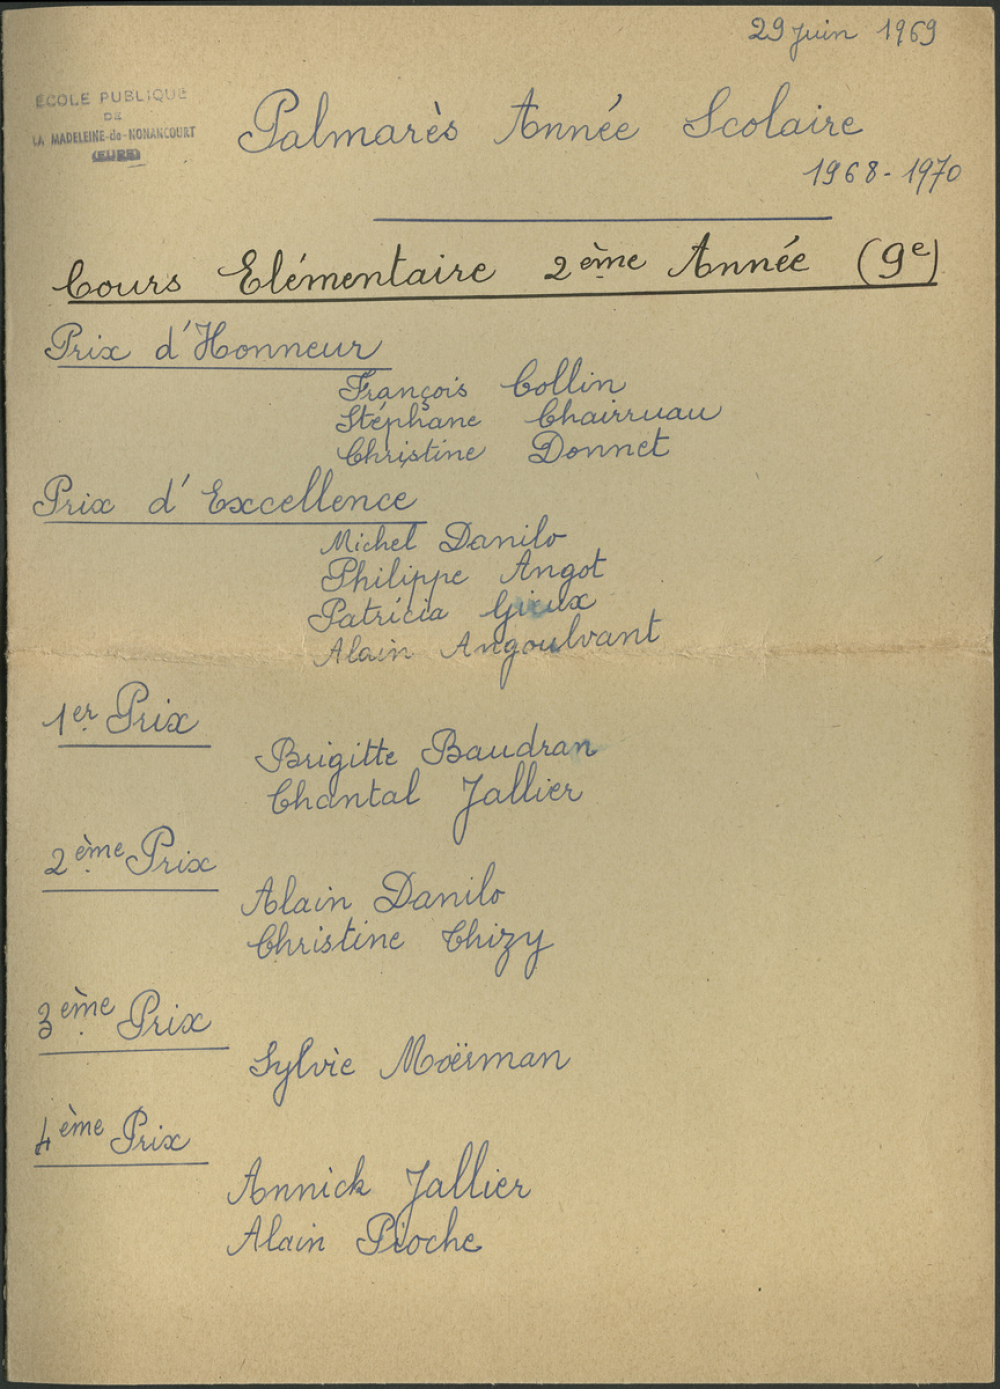 29 Juin 1969
ÉCOLE PUBLIQUE
DE
LA MADELEINE-de-NONANCOURT
(EURE)
Palmarès Année Scolaire
1968-1970
Cours Elémentaire 2ème Année (9e)
Prix d'Honneur
François Collin
Stéphane Chairruau
Christine Donnet
Prix d'Excellence
Michel Danilo
Philippe Angot
Patricia Gieux
Alain Angoulvant
1er Prix
Brigitte Baudran
Chantal Jallier
2ème Prix
Alain Danilo
Christine Chizy
3ème Prix
Sylvie Moërman
4ème Prix
Annick Jallier
Alain Pioche